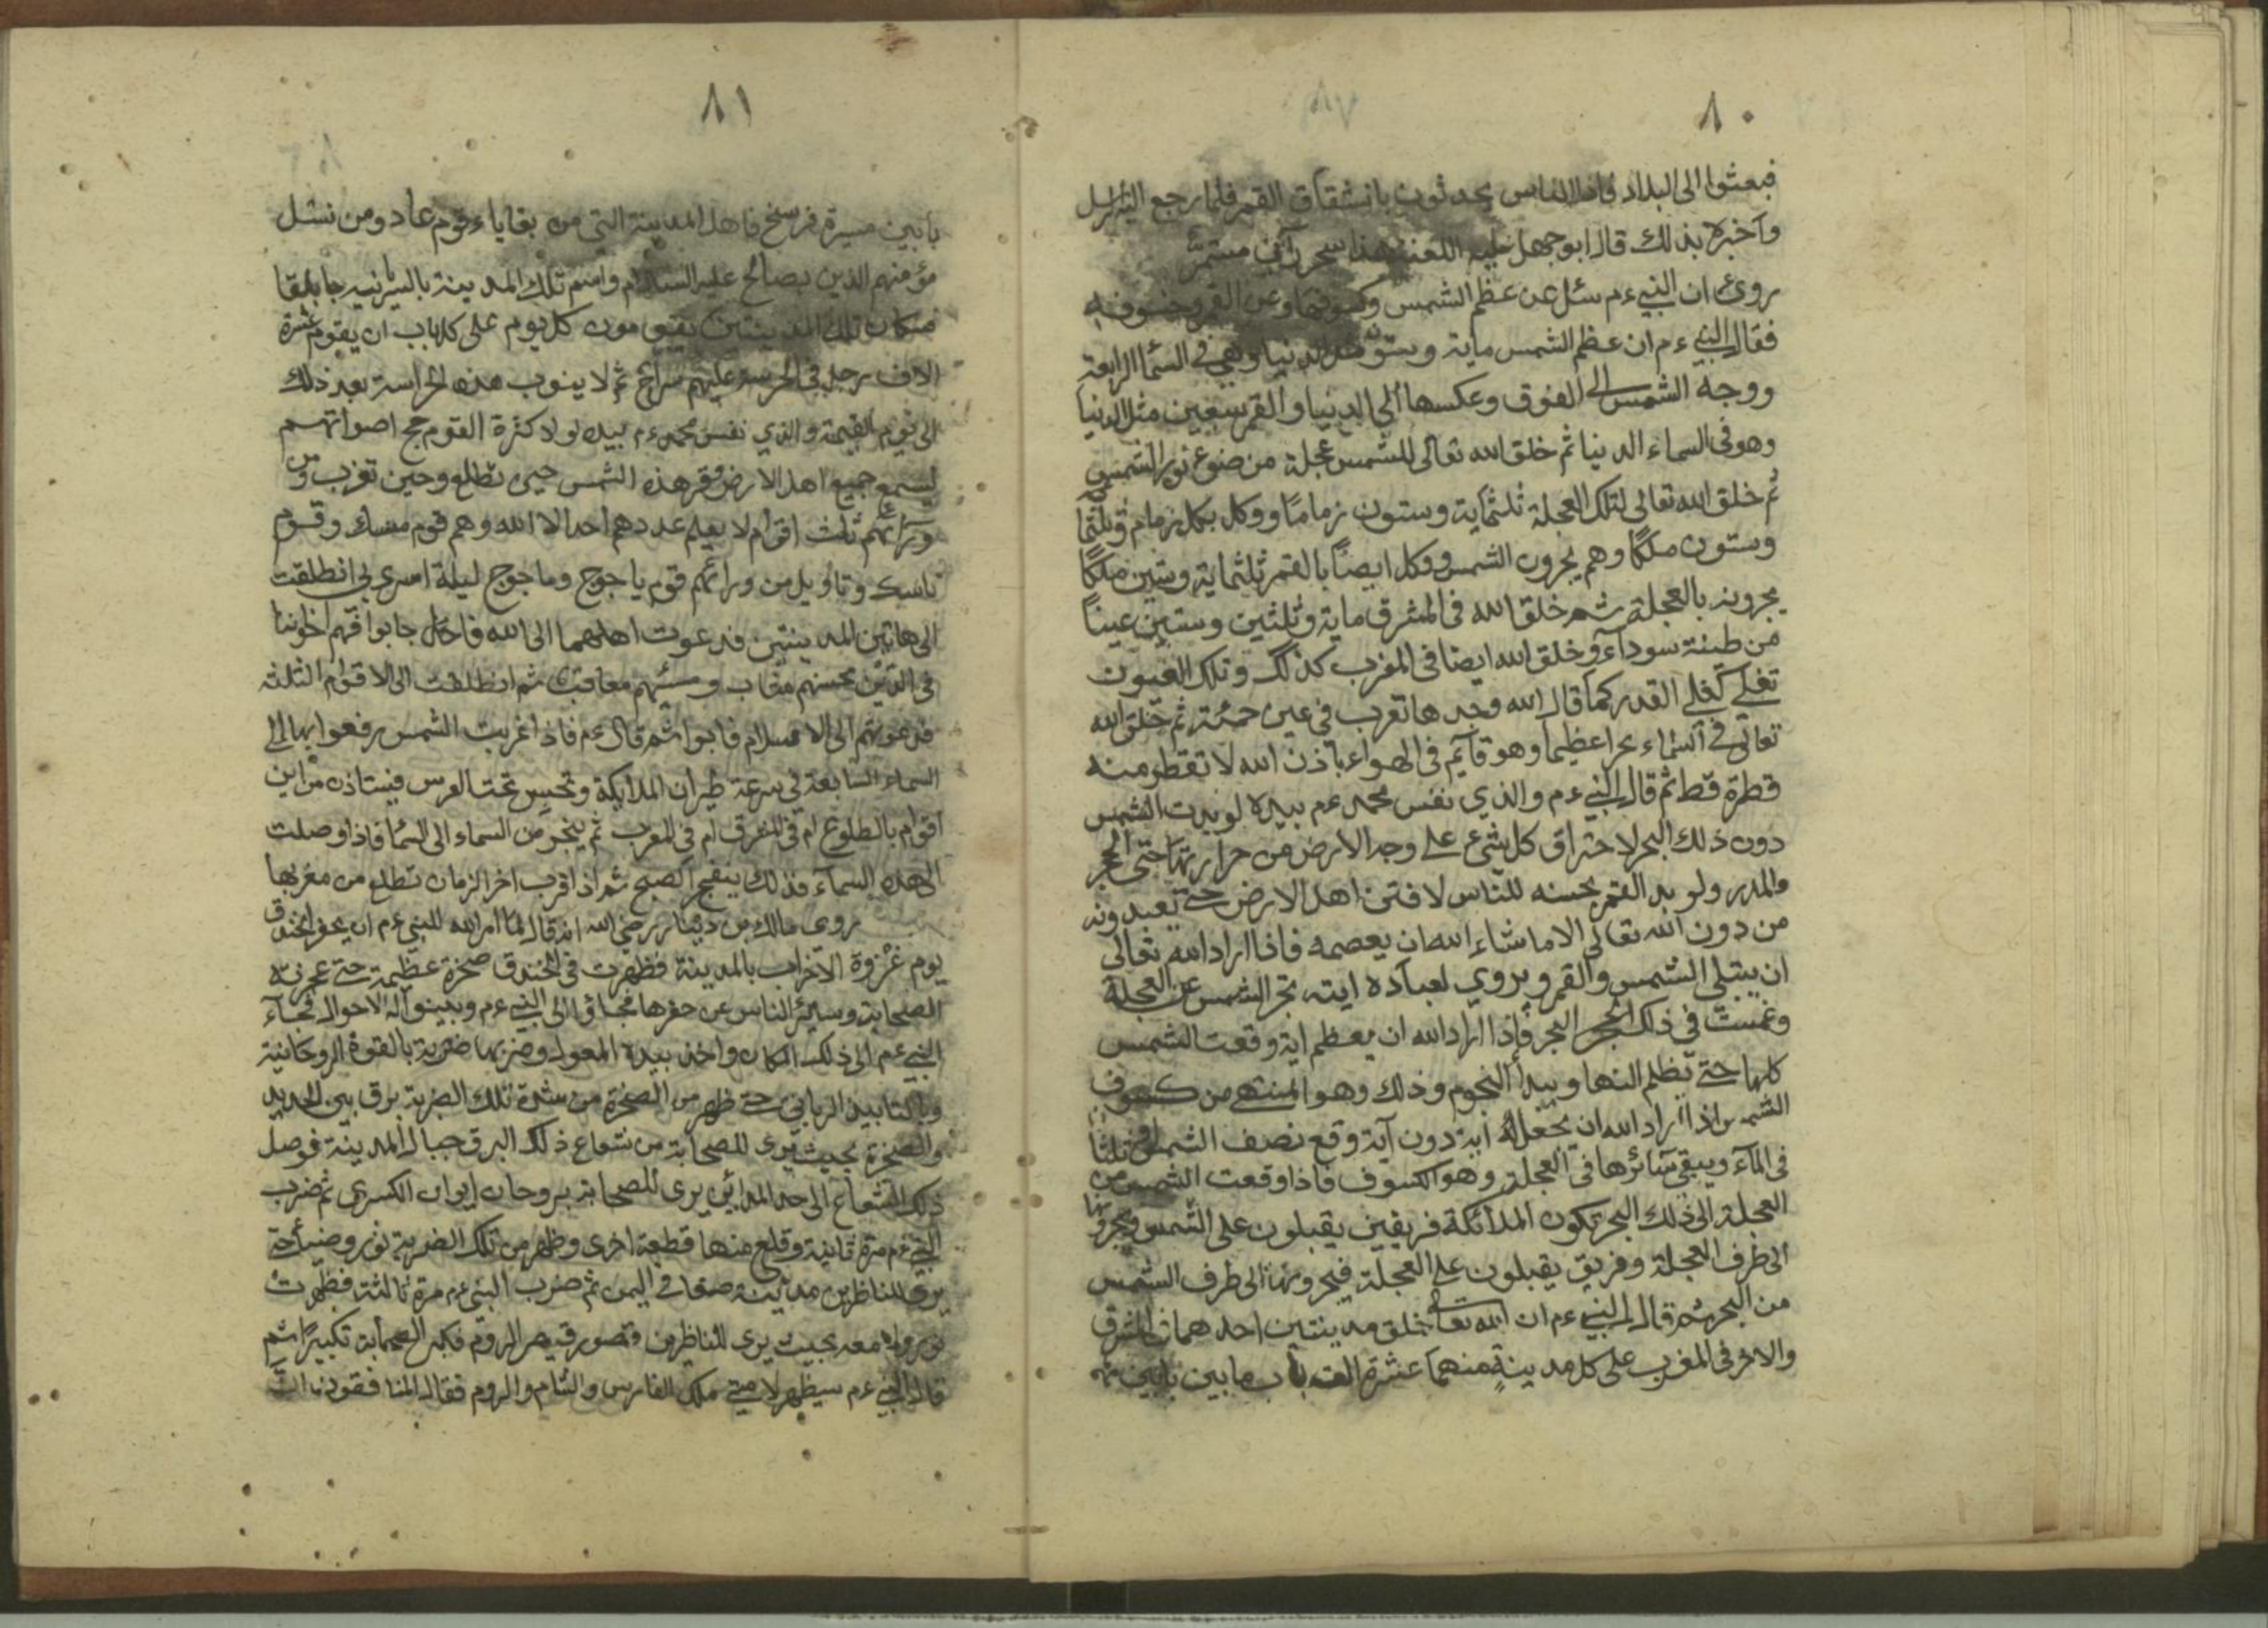 ٨٠
فبعثوا الى البلاد فاذا الناس يحدثون بانشقاق القمر فلما رجع اليه الرسل
وآخبره بذلك قال ابوجهل عليه اللعنة هذا سحر مستمر
روى ان النبي ءم سئل عن عظم الشمس وكسوفها وعن القمر وخسوفه
فقال النبي ءم ان عظم الشمس ماية وستون الدنيا وهي في السما الرابعة
ووجه الشمس الى الفوق وعكسها الى الدنيا والقمر سبعين مثل الدنيا
وهو في السماء الدنيا ثم خلق الله تعالى للشمس عجلة من ضوء نور الشمس
ثم خلق الله تعالى لتلك العجلة ثلثماية وستون زمامًا ووكل بكل زمام
وستون ملكًا وهم يجرون الشمس ووكل ايضًا بالقمر ثلثماية وستين ملكًا
يجرونه بالعجلة ثم خلق الله في المشرق ماية وثلثين وستين عينًا
من طينة سودآء وخلق الله ايضا في المغرب كذلك وتلك العيون
تغلي كغلي القدر كما قال الله وجدها تغرب في عين حمئة ثم خلق الله
تعالى في السماء بحرا عظيما وهو قآيم في الهواء باذن الله لا تقطر منه
قطرة قط ثم قال النبي ءم والذي نفس محمد ءم بيده لو بدت الشمس
دون ذلك البحر لاحتراق كل شيء على وجه الارض من حرارتها حتى الحجر
والمدر ولو بد القمر بحسنه للناس لافتتن اهل الارض حتى تعبدونه
من دون الله تعالى الا ماشاء الله ان يعصمه فاذا اراد الله تعالى
ان يبتلى الشمس والقمر ويروي لعباده ايته تجر الشمس عن العجلة
وغمست في ذلك البحر فإذا اراد الله ان يعظم اية وقعت الشمس
كلها حتى يظلم النها ويبدأ النجوم وذلك وهو المنتهى من كسوف
الشمس اذا اراد الله ان يجعل اية دون آية وقع نصف الشمس ثلثا
في المآء ويبقى سآئرها في العجلة وهو الكسوف فاذا وقعت الشمس من
العجلة الى ذلك البحر تكون الملائكة فريقين يقبلون على الشمس
الى طرف العجلة وفريق يقبلون على العجلة فيجرونها الى طرف الشمس
من البحر ثم قال النبي ءم ان الله تعالى خلق مدينتين احدهما في المشرق
والاخر في المغرب على كل مدينةٍ منهما عشرة الف باب ما بين بابين
٨١
بابين مسيرة فرسخ فاهل المدينة التي من بقاياء قوم عاد ومن نسل
مؤمنهم الذين بصالح عليه السلام واسم تلك المدينة بالسريانيه جابلقا
تلك المدينتين يقيمون كل يوم على كل باب ان يقوم عشرة
الاف رجل في الحرسة عليهم سراج ثم لا ينوب هذه الحراسة بعد ذلك
الى يوم القيمة والذي نفس محمد ءم بيده لولا كثرة القوم اصواتهم
ليسمع جميع اهل الارض هذه الشمس حين تطلع وحين تغرب ومن
ورائهم ثلث اقوام لا يعلم عددهم احد الا الله وهم قوم منسك وقوم
تاسك وتاويل من ورائهم قوم ياجوج وماجوج ليلة اسرى بي انطلقت
الى هاتين المدينتين فدعوت اهلهما الى الله فاجابوا فهم اخواننا
في الدين محسنهم ومسئهم ثم انطلقت الى الاقوام الثلثه
فدعوتهم الى الاسلام فابوا ثم قال ءم فاذا غربت الشمس رفعوا بها الى
السماء السابعة في سرعة طيران الملايكة وتحبس تحت العرش فيستاذن من اين
اقوام بالطلوع ام في المشرق ام في المغرب ثم ينجر من السماء الى السما فاذا وصلت
الى هذه السمآء فذلك ينفجر الصبح ثم اذا قرب اخر الزمان تطلع من مغربها
روى مالك بن دينار رضي الله انه قال لما امر الله للنبي ءم ان يحفر الخندق
يوم غزوة الاخزاب بالمدينة فظهرت في الخندق صخرة عظيمة حتى عجز
الصحابة وسير الناس عن حفرها فجاؤ الى النبي ءم وبينوا له الاحوال فجآء
النبي ءم الى ذلك المكان واخذ بيده المعول وضربها ضربة بالقوة الروحانية
وبالتاييد الرباني حتى ظهر من الصخرة من شدة تلك الضربة برق بين الحديد
والصخرة بحيث يرى للصحابة من شعاع ذلك البرق جبال المدينة فوصل
ذلك الشعاع الى حد المدائن يرى للصحابة ايوان الكسرى ثم ضرب
النبي ءم مرة ثانية وقلع منها قطعة اخرى وظهر من تلك الضربة نور وضياء حتى
يرى للناظرين مدينة صنعا في اليمن ثم ضرب النبي ءم مرة ثالثة فظهرت
نور بحيث يرى للناظرين قصور قيصر الروم فكبر الصحابة تكبيرًا ثم
قال النبي ءم سيظهر لامتى ملك الفارس والشام والروم فقال المنافقون ان